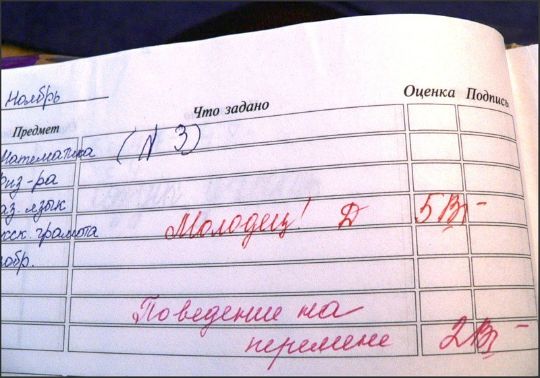 Ноябрь
Предмет Что задано Оценка Подпись
Математика (N 3)
физ-ра
каз. язык
русск. грамота Молодец! Д 5
изобр.
Поведение на
перемене 2